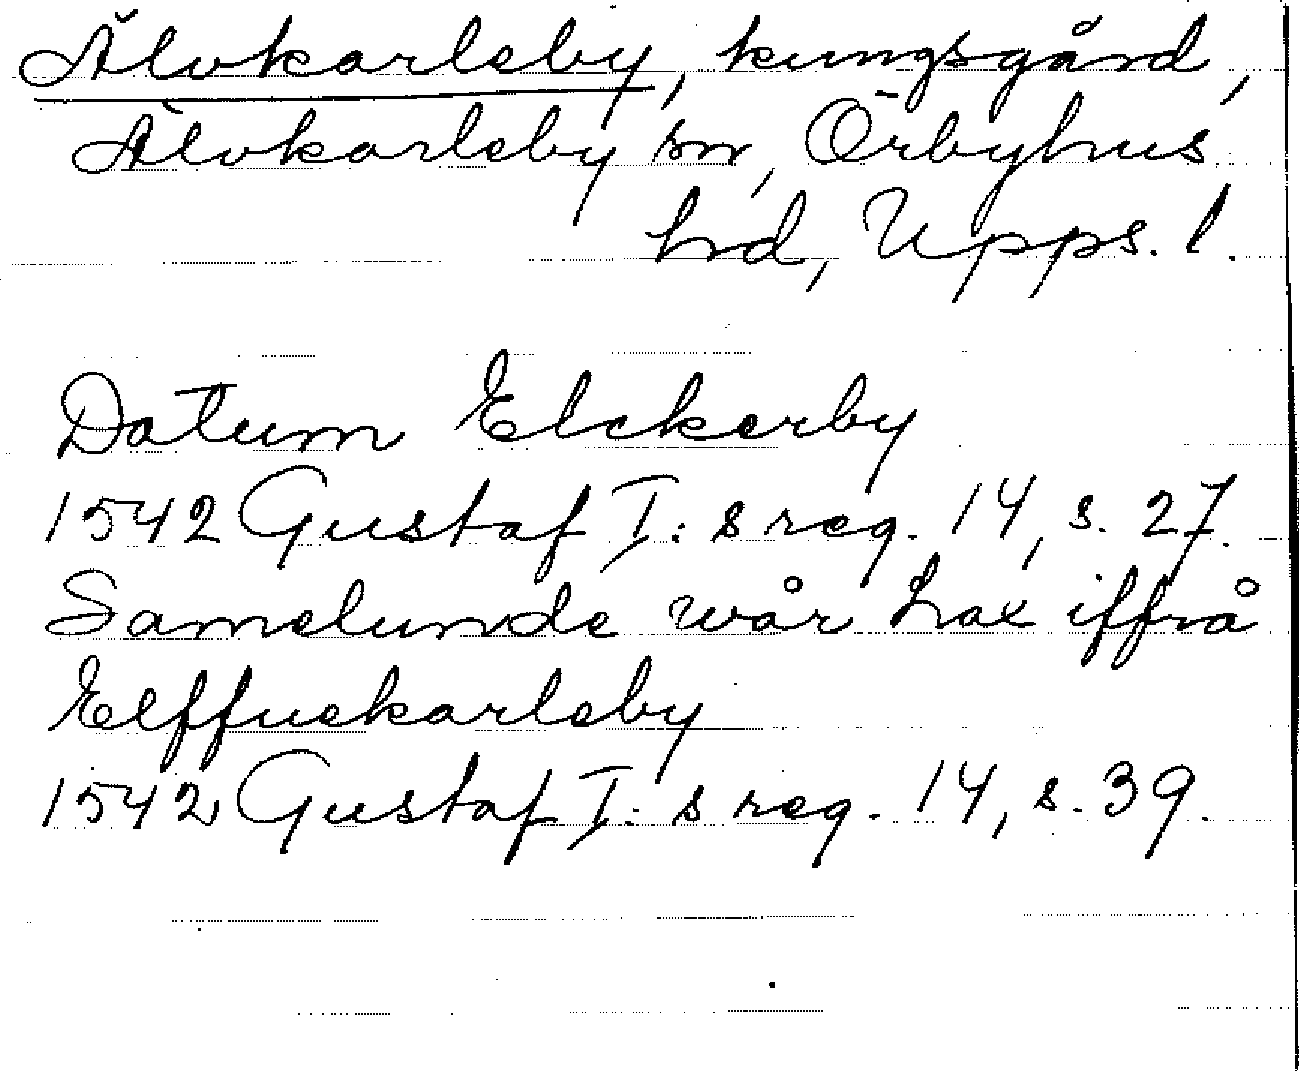 Älvkarleby, kungsgård,
Älvkarleby sn, Örbyhus
hd, Upps. l.
Datum Elckerby
1542 Gustaf I: s reg. 14, s. 27.
Samelunde wår Lax iffrå
Elffuekarleby
1542 Gustaf I: s reg. 14, s. 39.